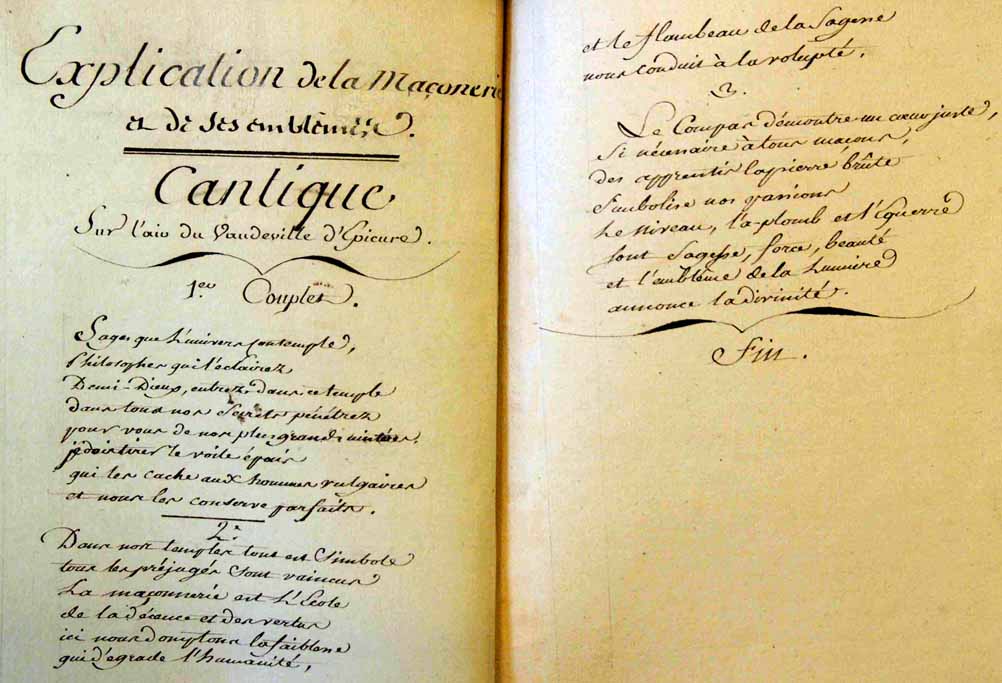 Explication de la Maçonerie
et de ses emblêmes.
Cantique
Sur l'air du Vaudeville d'Epicure.
1er Couplet.
Sages que l'univers contemple,
Philosophes qui l'éclairez
Demi-Dieux, entrez, dans ce temple
dans tous nos secrets pénétrez
pour vous de nos plus grands mistères,
je dois tirer le voile épais
qui les cache aux hommes vulgaires
et nous les conserve parfaits.
2e
Dans nos temples tout est Simbole
tous les préjugés sont vaincus
La maçonnerie est l'Ecole
de la décence et des vertus
ici nous domptons la faiblesse
qui dégrade l'humanité,
et le flambeau de la Sagesse
nous conduit à la volupté.
3.
Le Compas démontre un cœur juste,
Si nécessaire à tous maçons,
des apprentis la pierre brûte
Simbolise nos passions
Le niveau, l'a-plomb et l'Equerre
sont Sagesse, force, beauté
et l'emblême de la Lumière
annonce la divinité.
Fin.